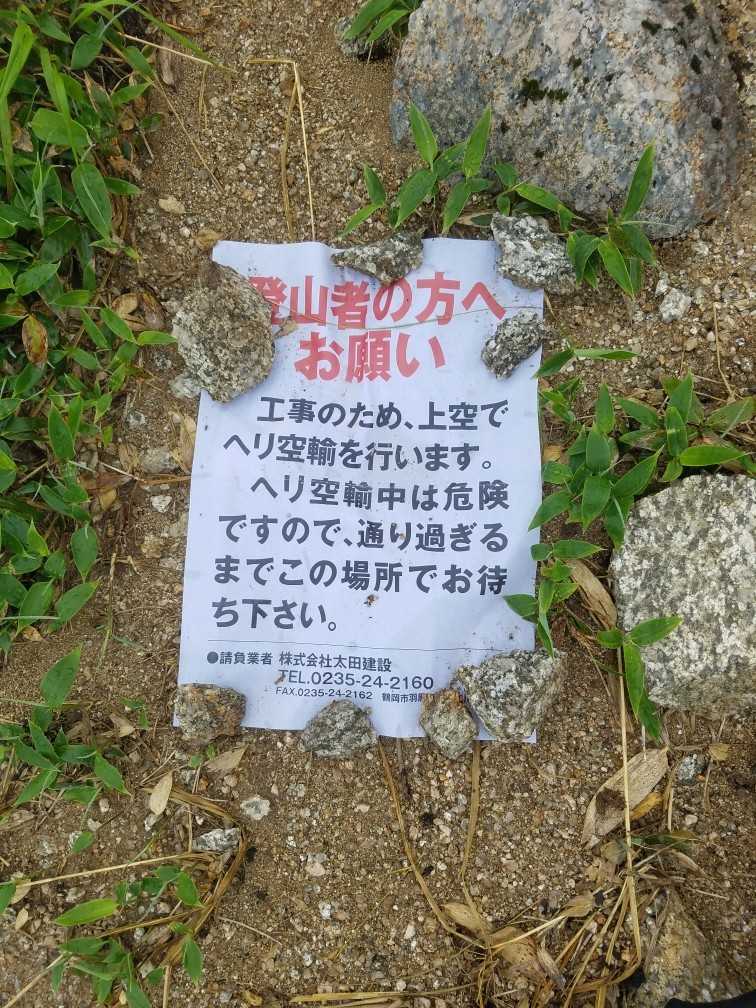 登山者の方へ
お願い
工事のため、上空で
ヘリ空輸を行います。
ヘリ空輸中は危険
ですので、通り過ぎる
までこの場所でお待
ち下さい。
●請負業者 株式会社太田建設
TEL.0235-24-2160
FAX.0235-24-2162 鶴岡市羽